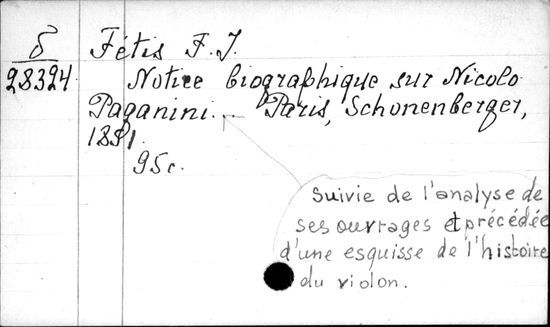 δ Fétis F. J.
28324 Notice biographique sur Nicolo
Paganini... Paris, Schonenberger,
1851.
95c.
Suivie de l'analyse de
ses ouvrages et précédée
d'une esquisse de l'histoire
du violon.